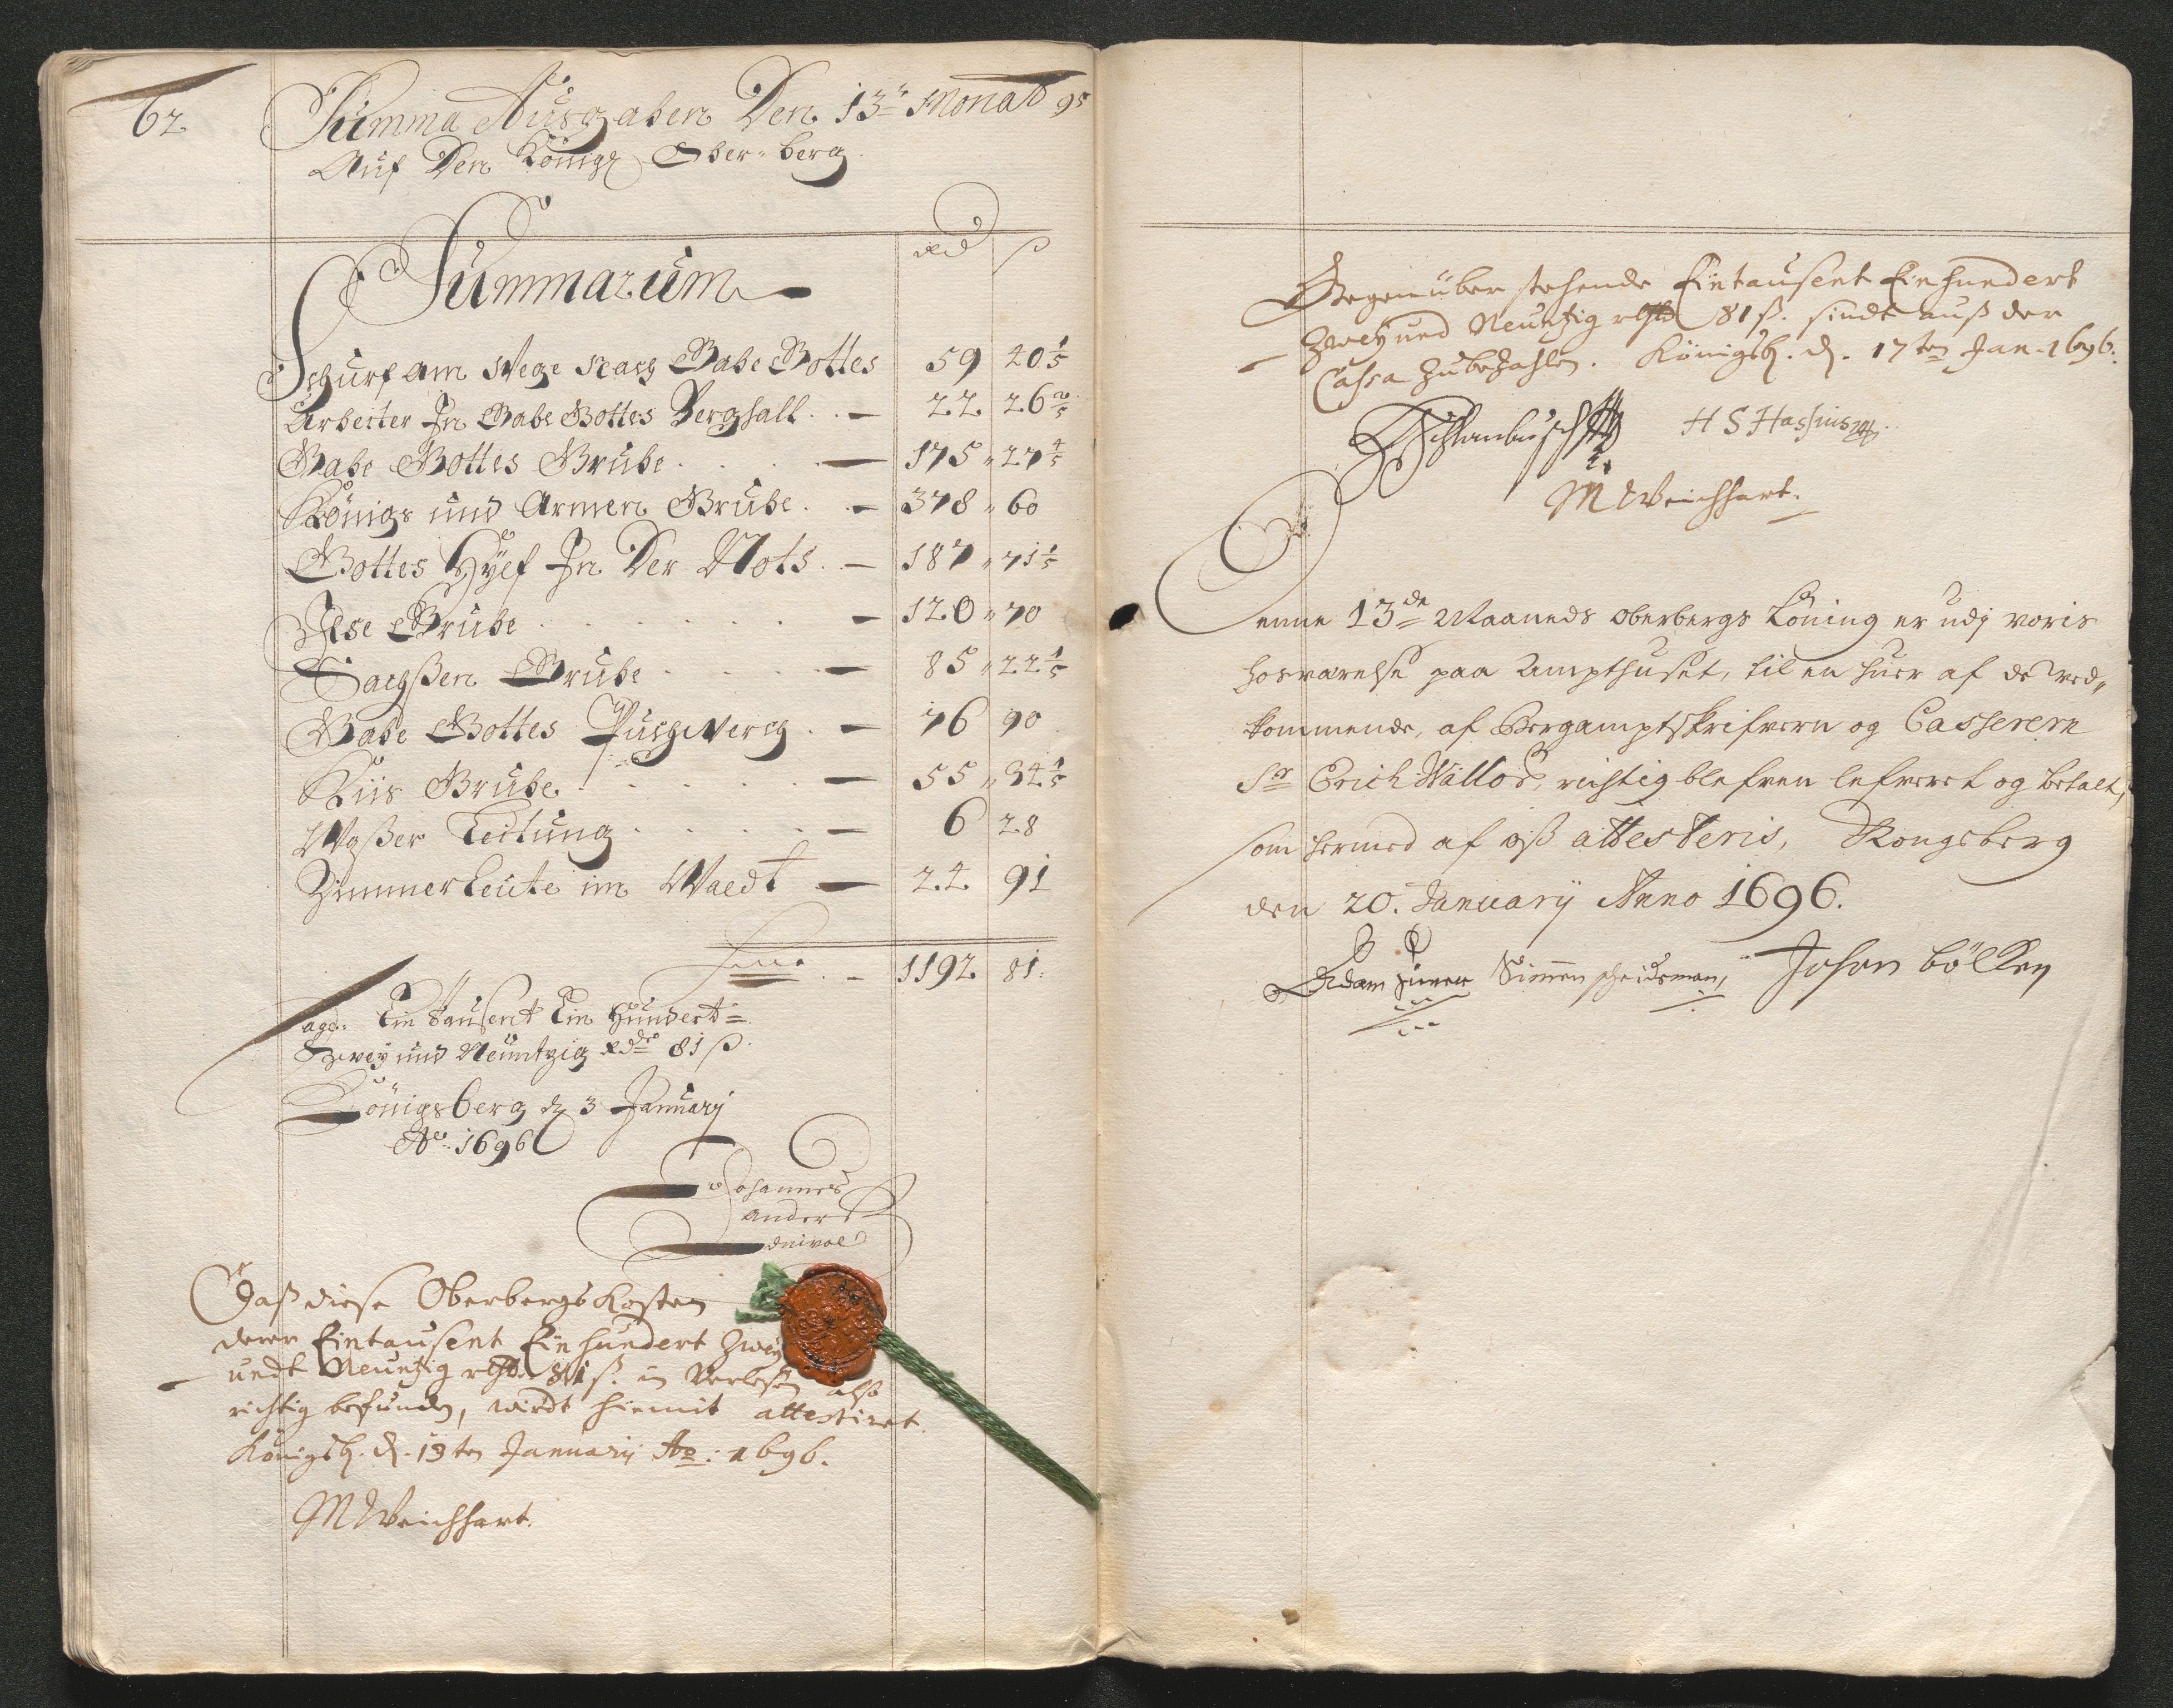 62
Summa Ausgaben Den 13t Monat 95
Auf Den Königl Ober-berg
Summarum
Rd ß
Schurf am Wege nach Gabe Gottes 59 20 1/5
Arbeiter In Gabe Gottes Berghall 22 26
Gabe Gottes Grube 175 27 4/5
Königs und Armen Grube 378 60
Gottes Hylf In Der Noth 187 71 1/5
Ilse Grube 120 70
Sachßen Grube 85 22 1/5
Gabe Gottes Puchwerch 76 90
Kiis Grube 55 34 1/5
Waßer Leitung 6 28
Zimmerleute im Waldt 24 91
1192 81
Sage: Ein Tausent Ein Hundert
Zwey und Neuntzig Rd 81 ß
Königsberg d 3 January
Ao: 1696
Johannes
Anders
Daß diese Oberbergs Kosten
derer Eintausent Einhundert Zwey
undt Neuntzig rthl 81 ß. in Verlesen also
richtig befunden, wirdt hiemit attestiret.
Königsb. d. 13ten January Ao: 1696.
M Weichhart.
Gegenüber stehende Eintausent Einhundert
Zwey und Neuntzig rthl 81 ß. sindt auß der
Cassa Zubezahlen. Königsb. d. 17ten Jan. 1696.
Schlanbusch H S Hassius
M Weichhart.
Denne 13de Maaneds Oberbergs Löning er udj voris
hosværelse paa Ampthuset, til en huer af de ved„
kommende, af Bergamptskrifvern og Casseren
Sr Erich , richtig blefven lefveret og betalt,
som hermed af oß attesteris, Kongsberg
den 20. January Anno 1696.
Adam Simen Johan Bölken